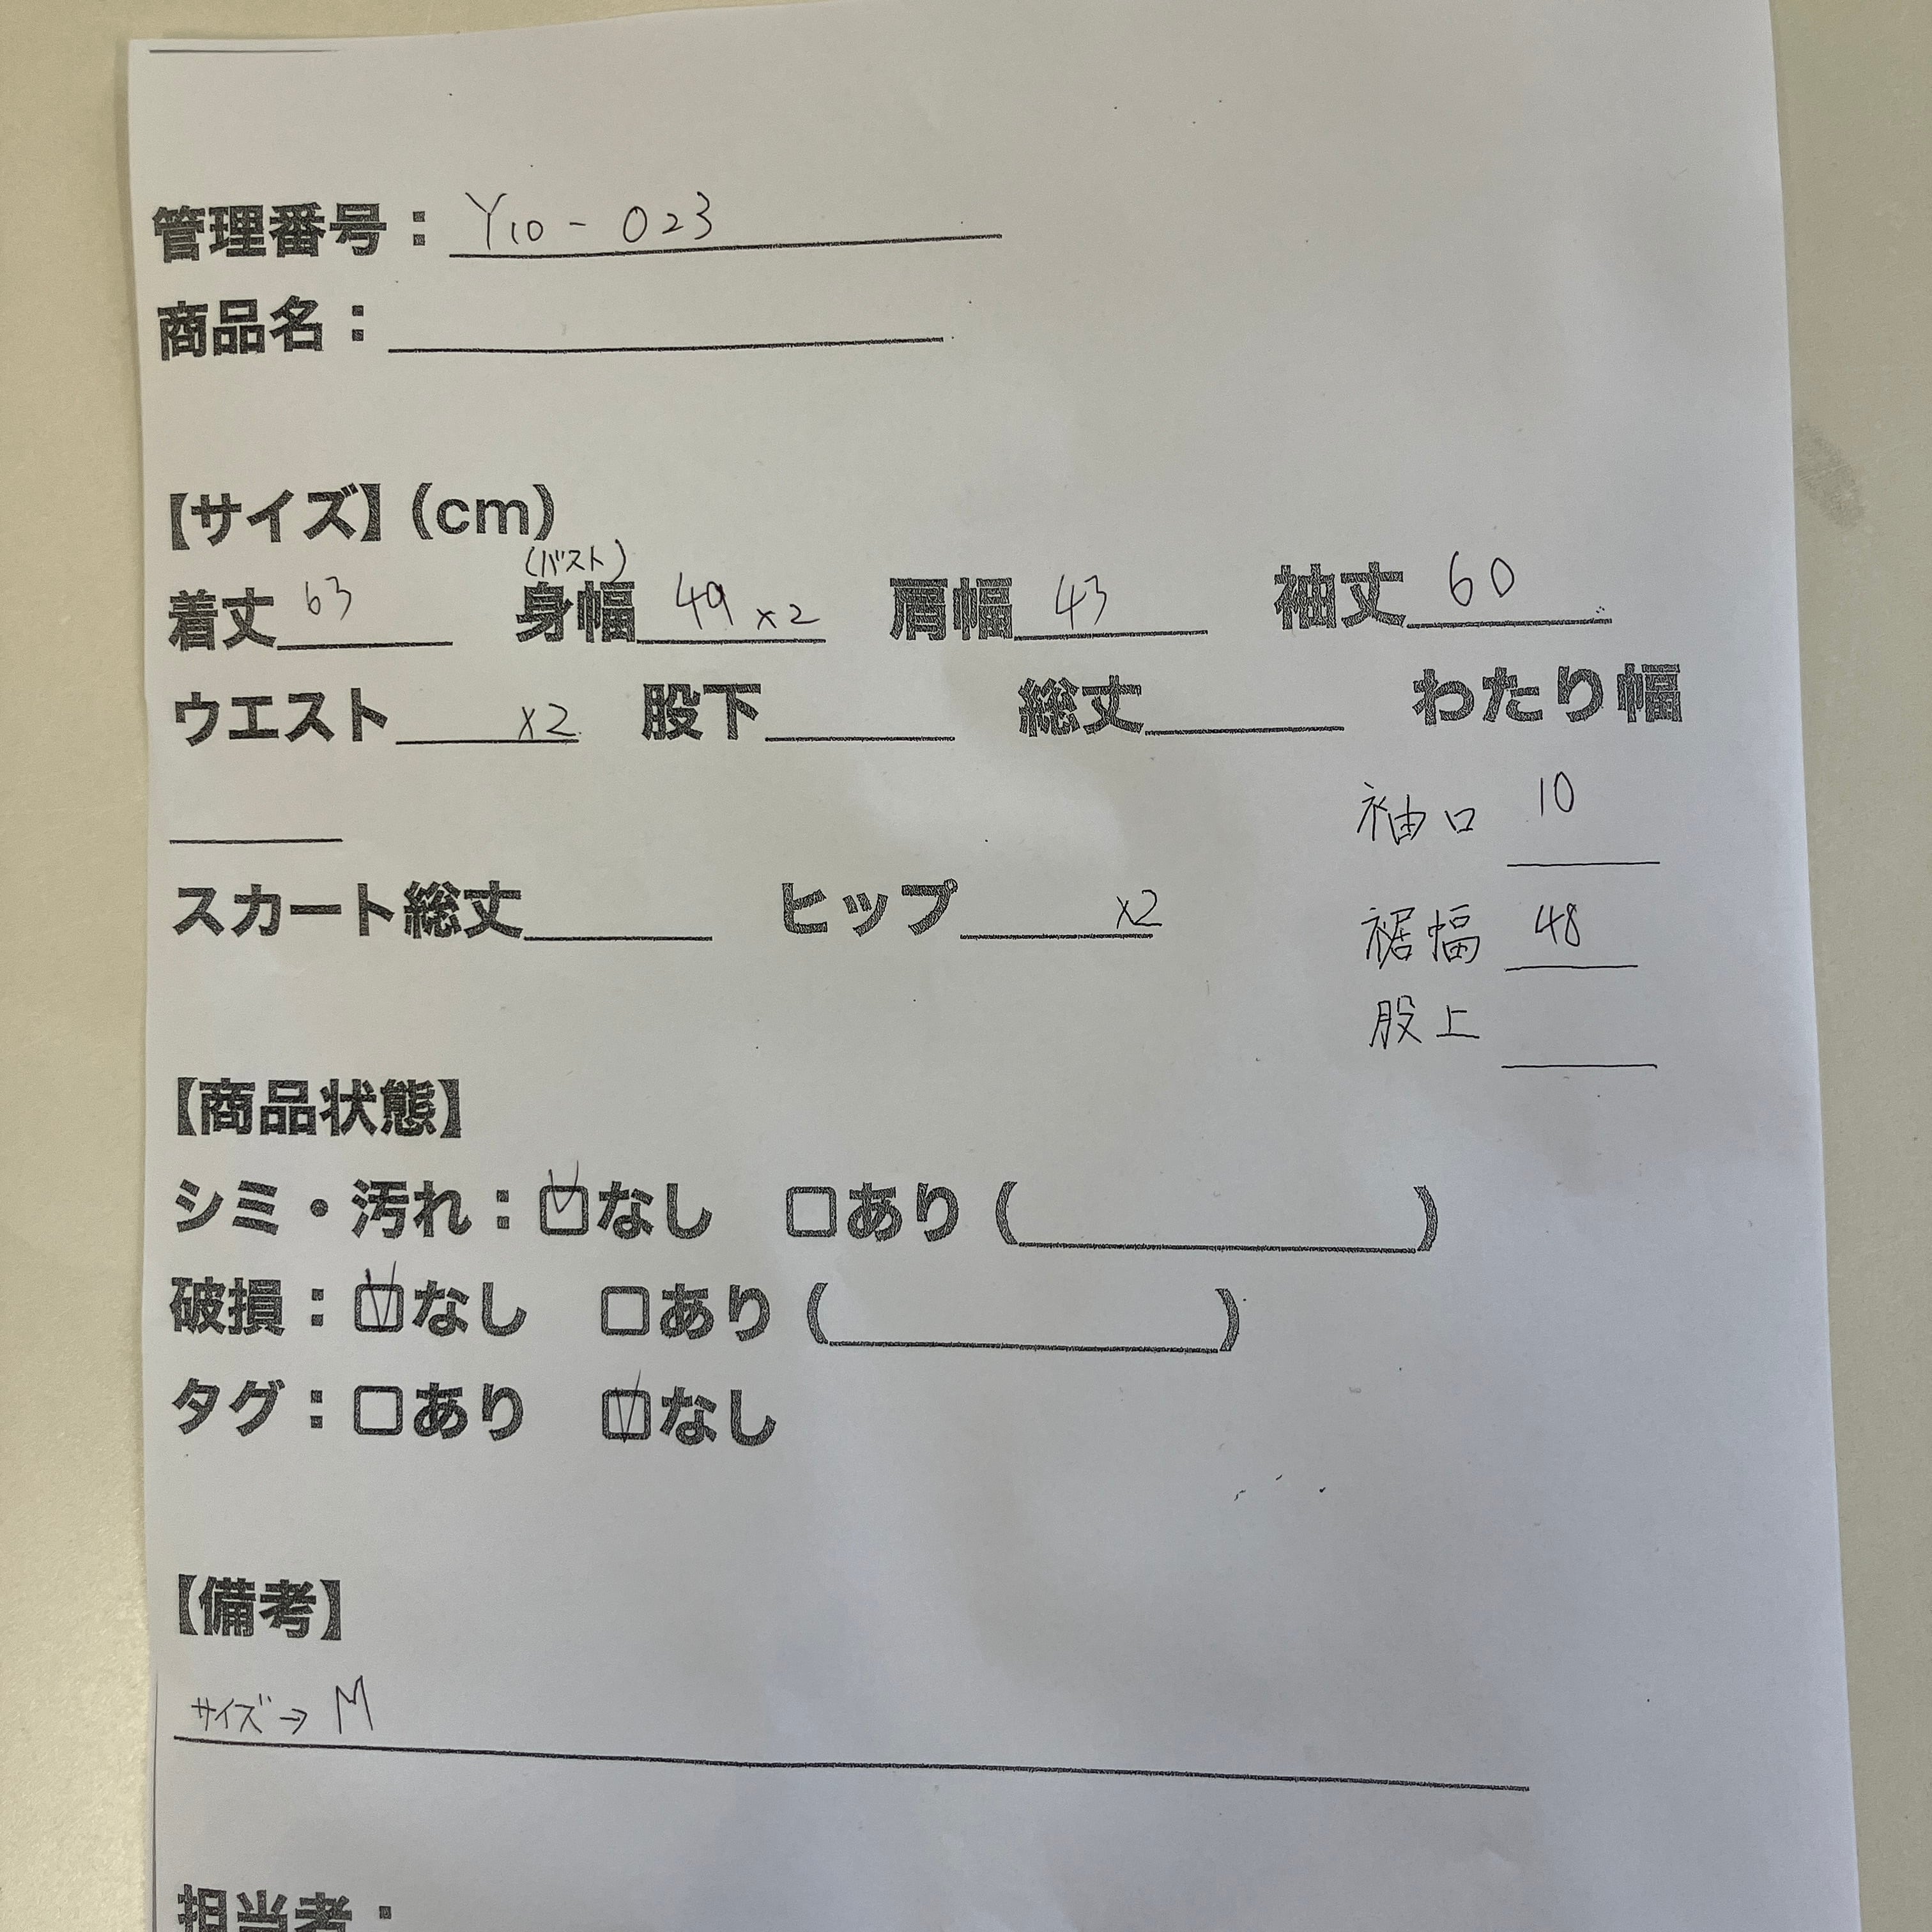 管理番号：Y10-023
商品名：
【サイズ】(cm)
(バスト)
着丈 63 身幅 49 x2 肩幅 43 袖丈 60
ウエスト x2 股下 総丈 わたり幅
袖口 10
スカート総丈 ヒップ x2
裾幅 48
股上
【商品状態】
シミ・汚れ：☑なし □あり（ ）
破損：☑なし □あり（ ）
タグ：□あり ☑なし
【備考】
サイズ→M
担当者：